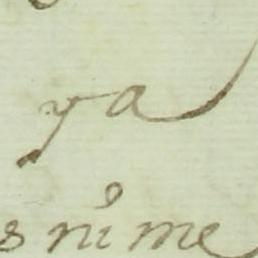 ya
s ni me